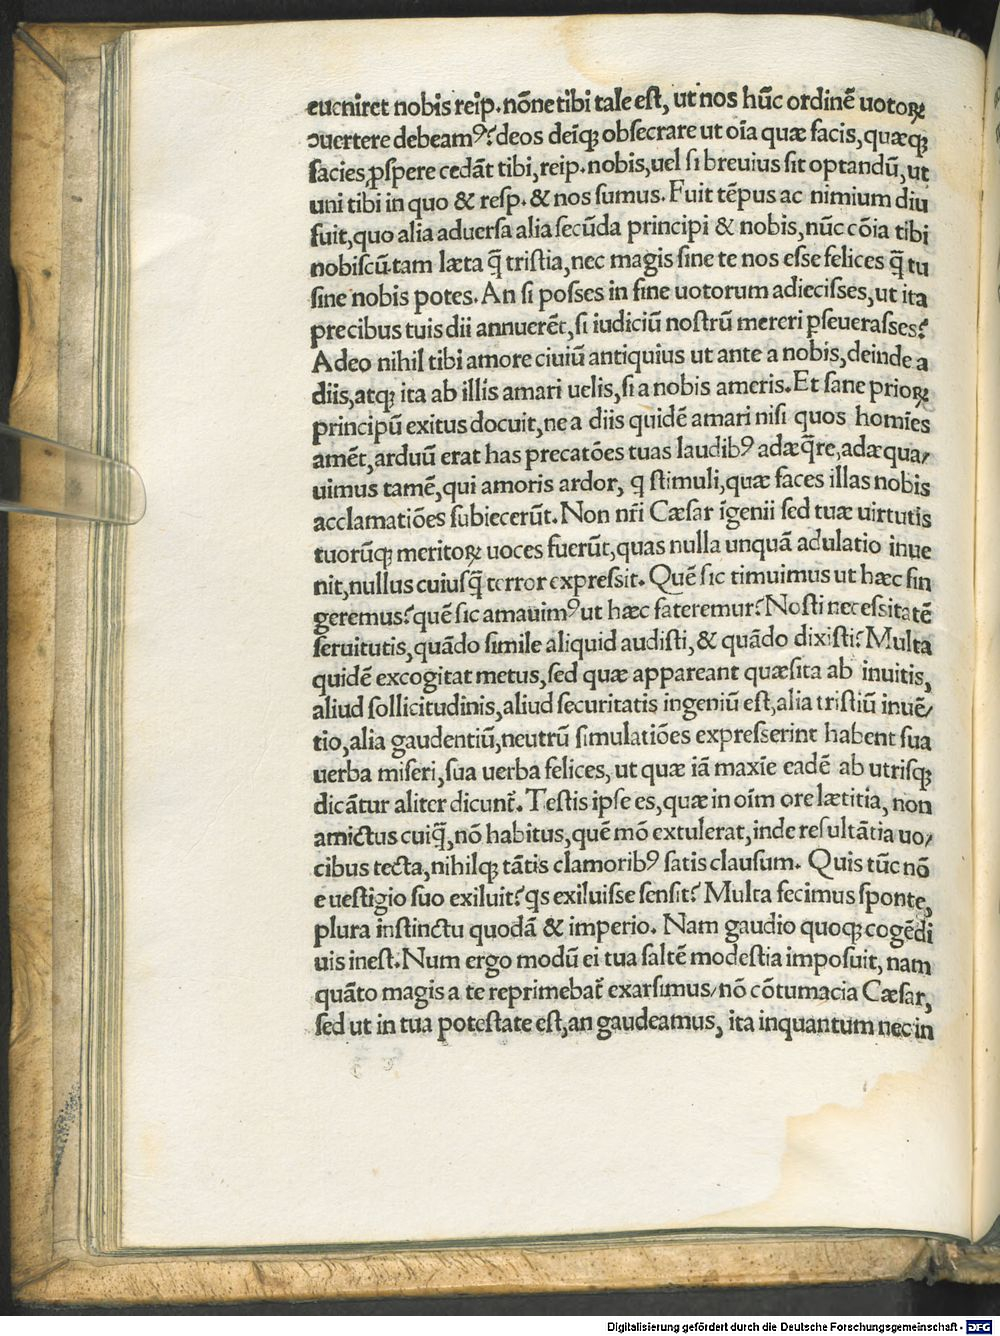 eueniret nobis reip. nõne tibi tale eſt, ut nos hũc ordinẽ uotoꝝ
ↄuertere debeamꝰ? deos deĩqꝫ obſecrare ut oĩa quæ facis, quæqꝫ
facies, ꝓſpere cedãt tibi, reip. nobis, uel ſi breuius ſit optandũ, ut
uni tibi in quo & reſp. & nos ſumus. Fuit tẽpus ac nimium diu
fuit, quo alia aduerſa alia ſecũda principi & nobis, nũc cõia tibi
nobiſcũ. tam læta q̃ triſtia, nec magis ſine te nos eſſe felices q̃ tu
ſine nobis potes. An ſi poſſes in fine uotorum adieciſſes, ut ita
precibus tuis dii annuerẽt, ſi iudiciũ noſtrũ mereri ꝑſeueraſſes?
Adeo nihil tibi amore ciuiũ antiquius ut ante a nobis, deinde a
diis, atqꝫ ita ab illis amari uelis, ſi a nobis ameris. Et ſane prioꝝ
principũ exitus docuit, ne a diis quidẽ amari niſi quos homĩes
amẽt, arduũ erat has precatões tuas laudibꝰ adæq̃re, adæqua/
uimus tamẽ, qui amoris ardor, q ſtimuli, quæ faces illas nobis
acclamatiões ſubiecerũt. Non nr̃i Cæſar ĩgenii ſed tuæ uirtutis
tuorũqꝫ meritoꝝ uoces fuerũt, quas nulla unquã adulatio inue
nit, nullus cuiuſq̃ terror expreſſit. Quẽ ſic timuimus ut hæc fin
geremus? quẽ ſic amauimꝰ ut hæc fateremur? Noſti neceſſitatẽ
ſeruitutis, quãdo ſimile aliquid audiſti, & quãdo dixiſti? Multa
quidẽ excogitat metus, ſed quæ appareant quæſita ab inuitis,
aliud ſollicitudinis, aliud ſecuritatis ingeniũ eſt, alia triſtiũ inuẽ/
tio, alia gaudentiũ, neutrũ ſimulatiões expreſſerint habent ſua
uerba miſeri, ſua uerba felices, ut quæ iã maxĩe eadẽ ab utriſqꝫ
dicãtur aliter dicunt̃. Teſtis ipſe es, quæ in oĩm ore lætitia, non
amictus cuiq̃, nõ habitus, quẽ mõ extulerat, inde reſultãtia uo/
cibus tecta, nihilqꝫ tãtis clamoribꝰ ſatis clauſum. Quis tũc nõ
e ueſtigio ſuo exiluit? q̃s exiluiſſe ſenſit? Multa fecimus ſponte,
plura inſtinctu quodã & imperio. Nam gaudio quoqꝫ cogẽdi
uis ineſt. Num ergo modũ ei tua ſaltẽ modeſtia impoſuit, nam
quãto magis a te reprimebat̃ exarſimus/ nõ cõtumacia Cæſar,
ſed ut in tua poteſtate eſt, an gaudeamus, ita inquantum nec in
Digitalisierung gefördert durch die Deutsche Forschungsgemeinschaft - DFG